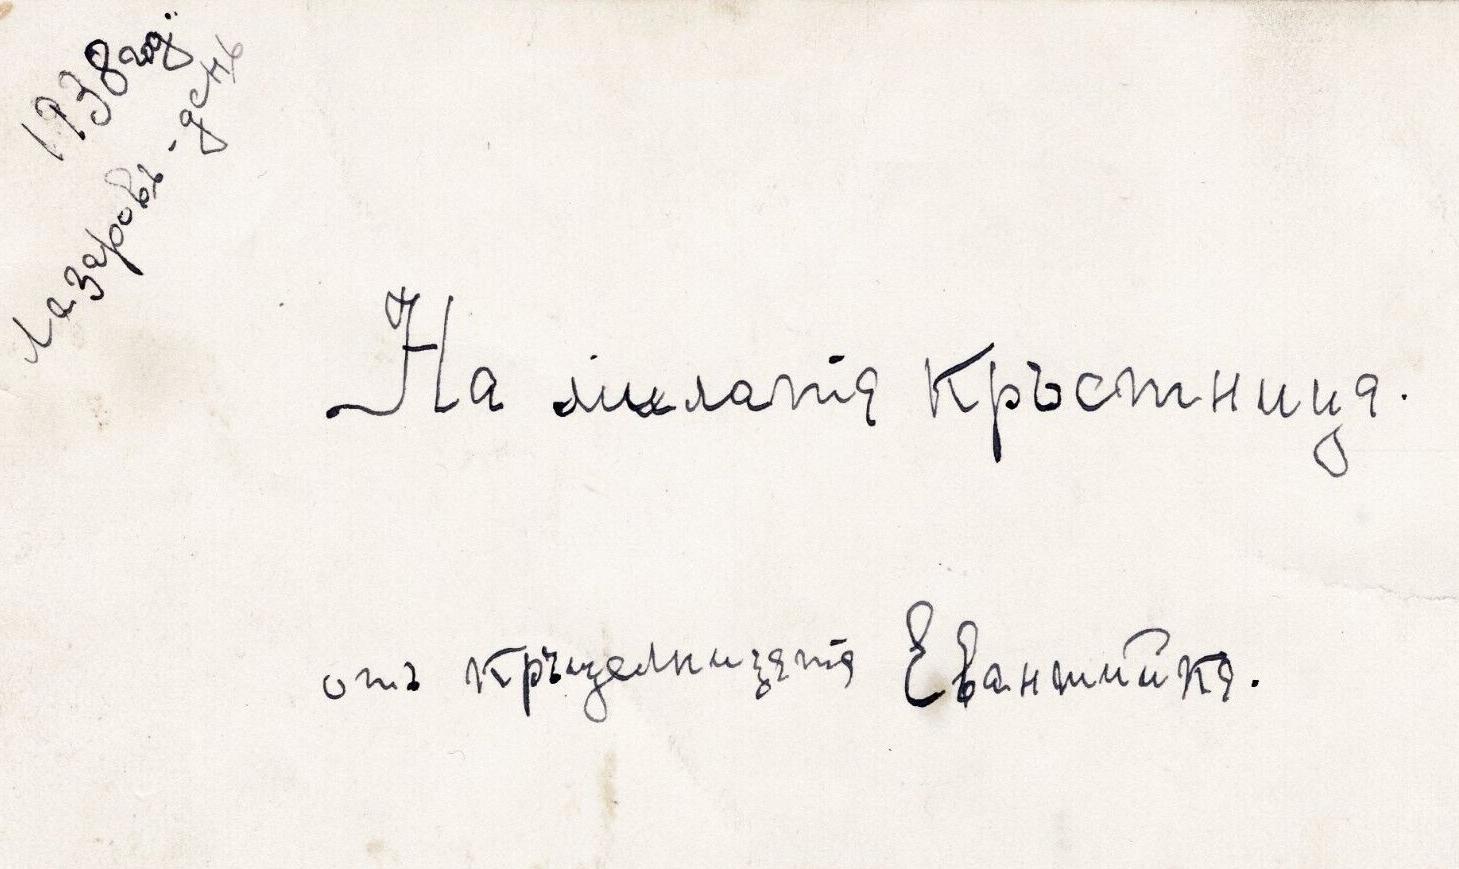 1938 год.
Лазаровъ-день
На милата кръстница.
отъ кръщелницата Евантийка.